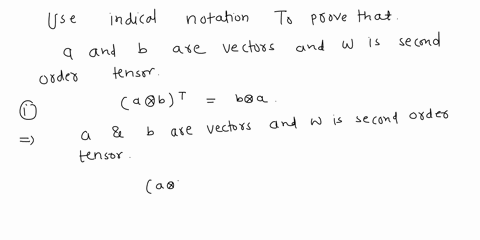 Use indical notation To prove that.
a and b are vectors and w is second
order tensor.
(i) (a⊗b)ᵀ = b⊗a.
⇒ a & b are vectors and w is second order
tensor.
(a⊗